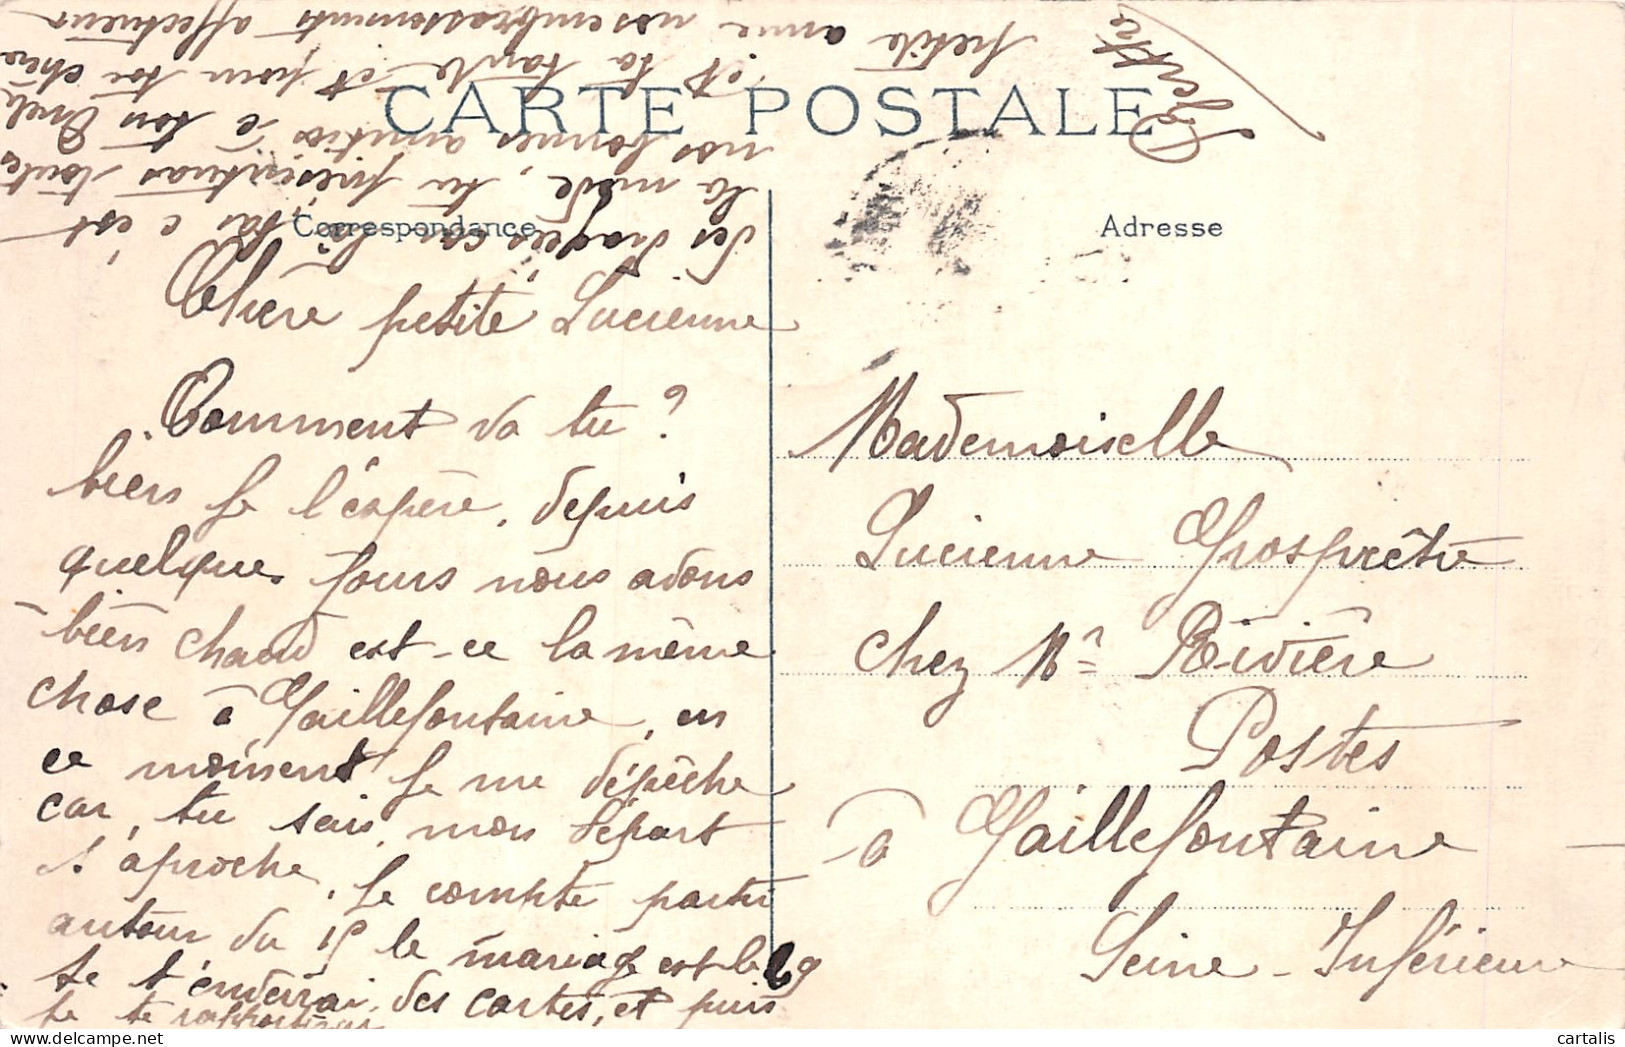 CARTE POSTALE
Correspondance
Adresse
Chère petite Lucienne
Comment va tu ?
bien je l'espère, depuis
quelques jours nous avons
bien chaud est-ce la même
chose à Gaillefontaine, en
ce moment je me dépèche
car, tu sais, mon départ
s'aproche, je compte partir
autour du 15 le mariage est le 29
je t'enverrai des cartes, et puis
je te rapporterai
des dragées car là bas c'est
la mode, tu présenteras toutes
nos bonnes amitiés à ton Oncle
et ta tante et pour toi chère
petite amie nos embrassements affectueux
Mademoiselle
Lucienne Grosprêtre
chez Mr Rivière
Postes
à Gaillefontaine
Seine-Inférieure
cartalis